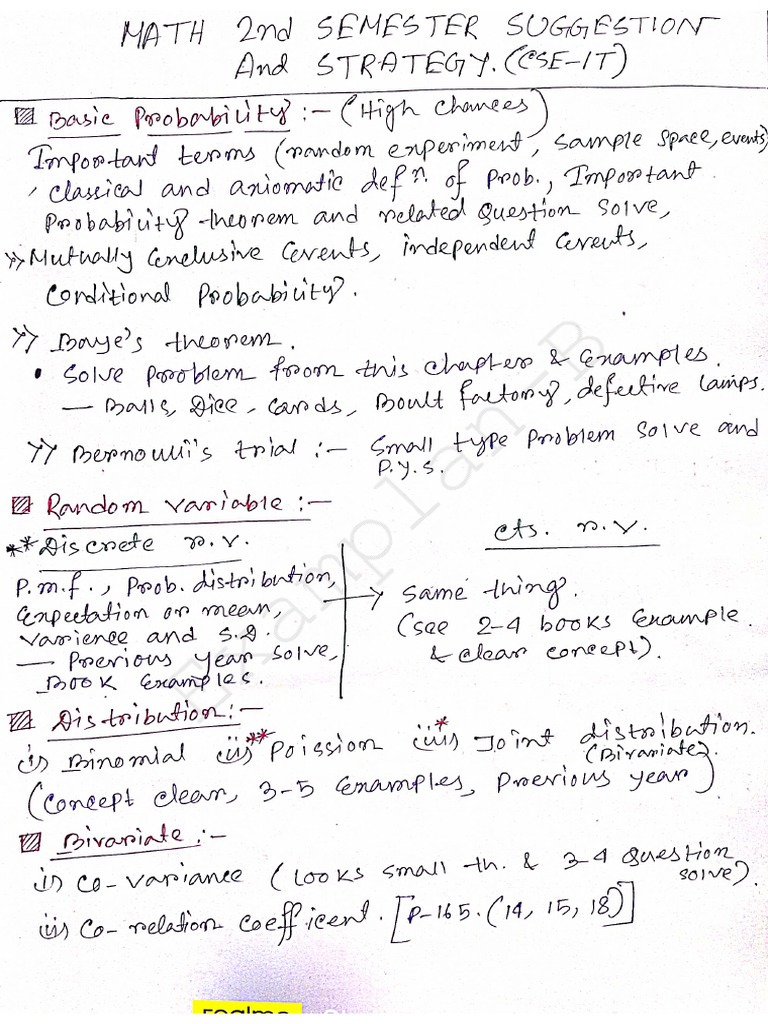 MATH 2nd SEMESTER SUGGESTION
And STRATEGY. (CSE-IT)
Basic Probability :- (High chances)
Important terms (random experiment, sample space, events)
, classical and axiomatic defn. of Prob., Important
Probability theorem and related Question solve,
>> Mutually exclusive events, independent events,
Conditional Probability.
>> Baye's theorem.
• Solve problem from this chapter & examples.
— Balls, Dice, cards, Boult factory, defective lamps.
>> Bernoulli's trial :- Small type problem solve and
P.y.s.
Random variable :-
**Discrete r.v.
P.m.f., Prob. distribution,
Expectation or mean,
varience and S.D.
— Previous year solve,
Book Examples.
cts. r.v.
→ same thing.
(see 2-4 books example
& clear concept).
Distribution :-
i) Binomial ii)** Poission iii)* Joint distribution.
(Bivariate).
(Concept clear, 3-5 Examples, Previous year)
Bivariate :-
i) Co-variance (Looks small th. & 3-4 question
solve).
ii) Co-relation coefficent. [P-165. (14, 15, 18)]
Examplan-B
realme